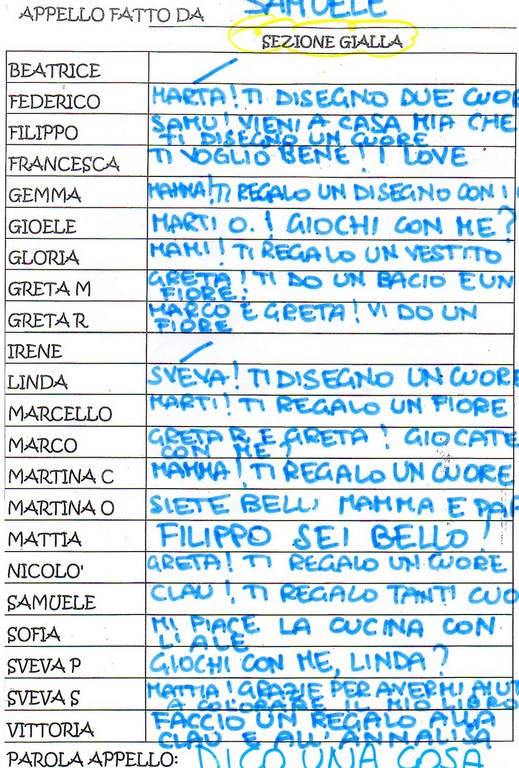 APPELLO FATTO DA SAMUELE
SEZIONE GIALLA
BEATRICE
FEDERICO MARTA! TI DISEGNO DUE CUOR
FILIPPO SAMU! VIENI A CASA MIA CHE
TI DISEGNO UN CUORE
FRANCESCA TI VOGLIO BENE! I LOVE
GEMMA MAMMA! TI REGALO UN DISEGNO CON I
GIOELE MARTI O.! GIOCHI CON ME?
GLORIA MAMI! TI REGALO UN VESTITO
GRETA M GRETA! TI DO UN BACIO E UN
FIORE!
GRETA R MARCO E GRETA! VI DO UN
FIORE
IRENE
LINDA SVEVA! TI DISEGNO UN CUORE
MARCELLO MARTI! TI REGALO UN FIORE
MARCO GRETA R E GRETA! GIOCATE
CON ME?
MARTINA C MAMMA! TI REGALO UN CUORE
MARTINA O SIETE BELLI MAMMA E PAP
MATTIA FILIPPO SEI BELLO!
NICOLO' GRETA! TI REGALO UN CUORE
SAMUELE CLAU! TI REGALO TANTI CUO
SOFIA MI PIACE LA CUCINA CON
LI ALE
SVEVA P GIOCHI CON ME, LINDA?
SVEVA S MATTIA! GRAZIE PER AVERMI AIUT
A COLORARE IL MIO LIBRO
VITTORIA FACCIO UN REGALO ALLA
CLAU E ALL'ANNALISA
PAROLA APPELLO: DICO UNA COSA